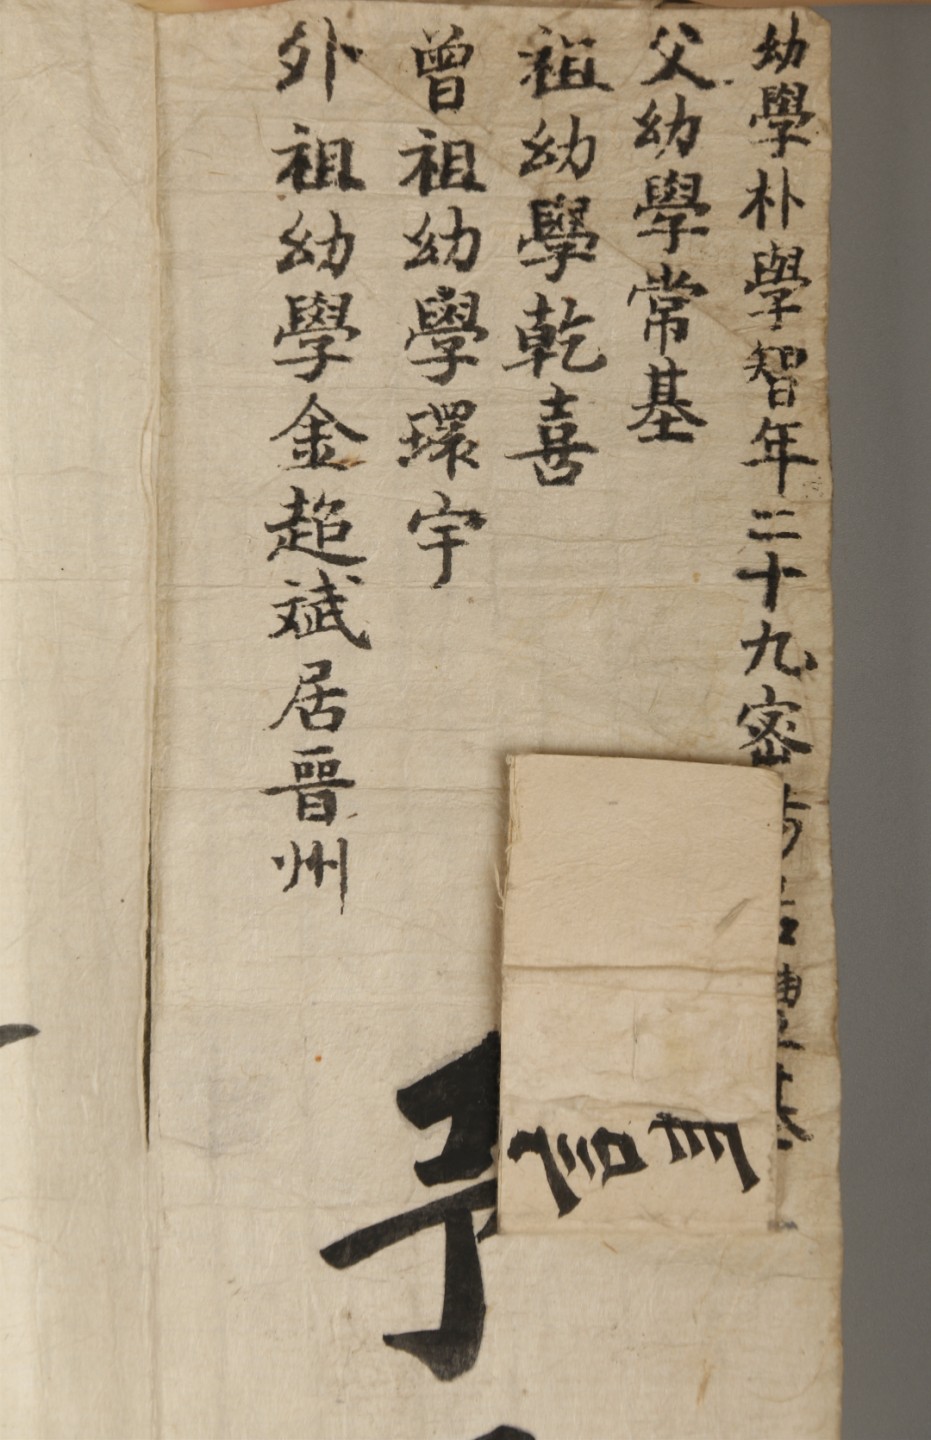 幼學朴學智年二十九密
父幼學常基
祖幼學乾喜
曾祖幼學環宇
外祖幼學金超斌居晉州